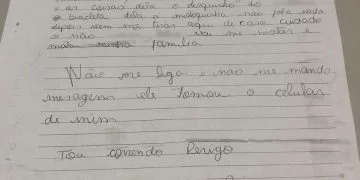 e as coisas dela o desgunho do
a bicicleta dela a motoquinha não fala nada
depois vem me tirar aqui de casa cuidado
se não vou me matar e
mata minha família
Não me liga e não me manda
mesagem ele Tomou o celular
de mim
Tou corendo Perigo